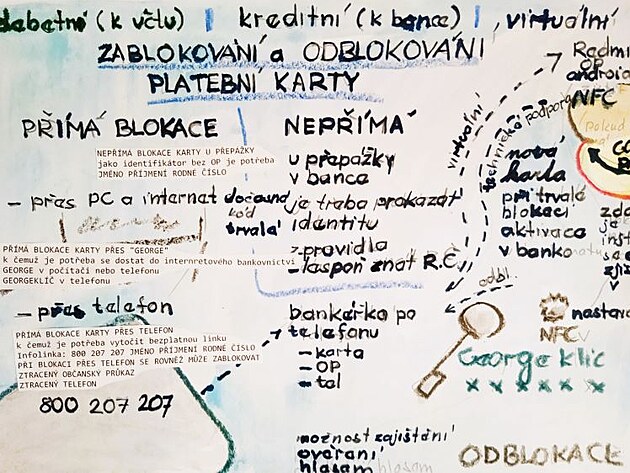 debetní (k účtu) | kreditní (k bance) | virtuální
ZABLOKOVÁNÍ a ODBLOKOVÁNÍ
PLATEBNÍ KARTY
PŘÍMÁ BLOKACE
NEPŘÍMÁ BLOKACE KARTY U PŘEPÁŽKY
jako identifikátor bez OP je potřeba
JMÉNO PŘIJMENÍ RODNÉ ČÍSLO
– přes PC a internet dočasná
kód
trvalá
PŘÍMÁ BLOKACE KARTY PŘES "GEORGE"
k čemuž je potřeba se dostat do internretového bankovnictví
GEORGE v počítači nebo telefonu
GEORGEKLÍČ v telefonu
– přes telefon
PŘÍMÁ BLOKACE KARTY PŘES TELEFON
k čemuž je potřeba vytočit bezplatnou linku
Infolinka: 800 207 207 JMÉNO PŘIJMENÍ RODNÉ ČÍSLO
PŘI BLOKACI PŘES TELEFON SE ROVNĚŽ MŮŽE ZABLOKOVAT
ZTRACENÝ OBČANSKÝ PRŮKAZ
ZTRACENÝ TELEFON
800 207 207
NEPŘÍMÁ
u přepážky
v bance
je třeba prokázat
identitu
z pravidla
– laspoň znát R.Č.
bankéřka po
telefonu
– karta
– OP
– tel
možnost zajištění
ověřaní
hlasem hlasem
virtuální
technická podpora
Redmi
OP
android
NFC
nová
karla
při trvalé
blokaci
aktivace
v banko
odbl.
NFC
nastav
George klíc
x x x x x x
ODBLOKACE